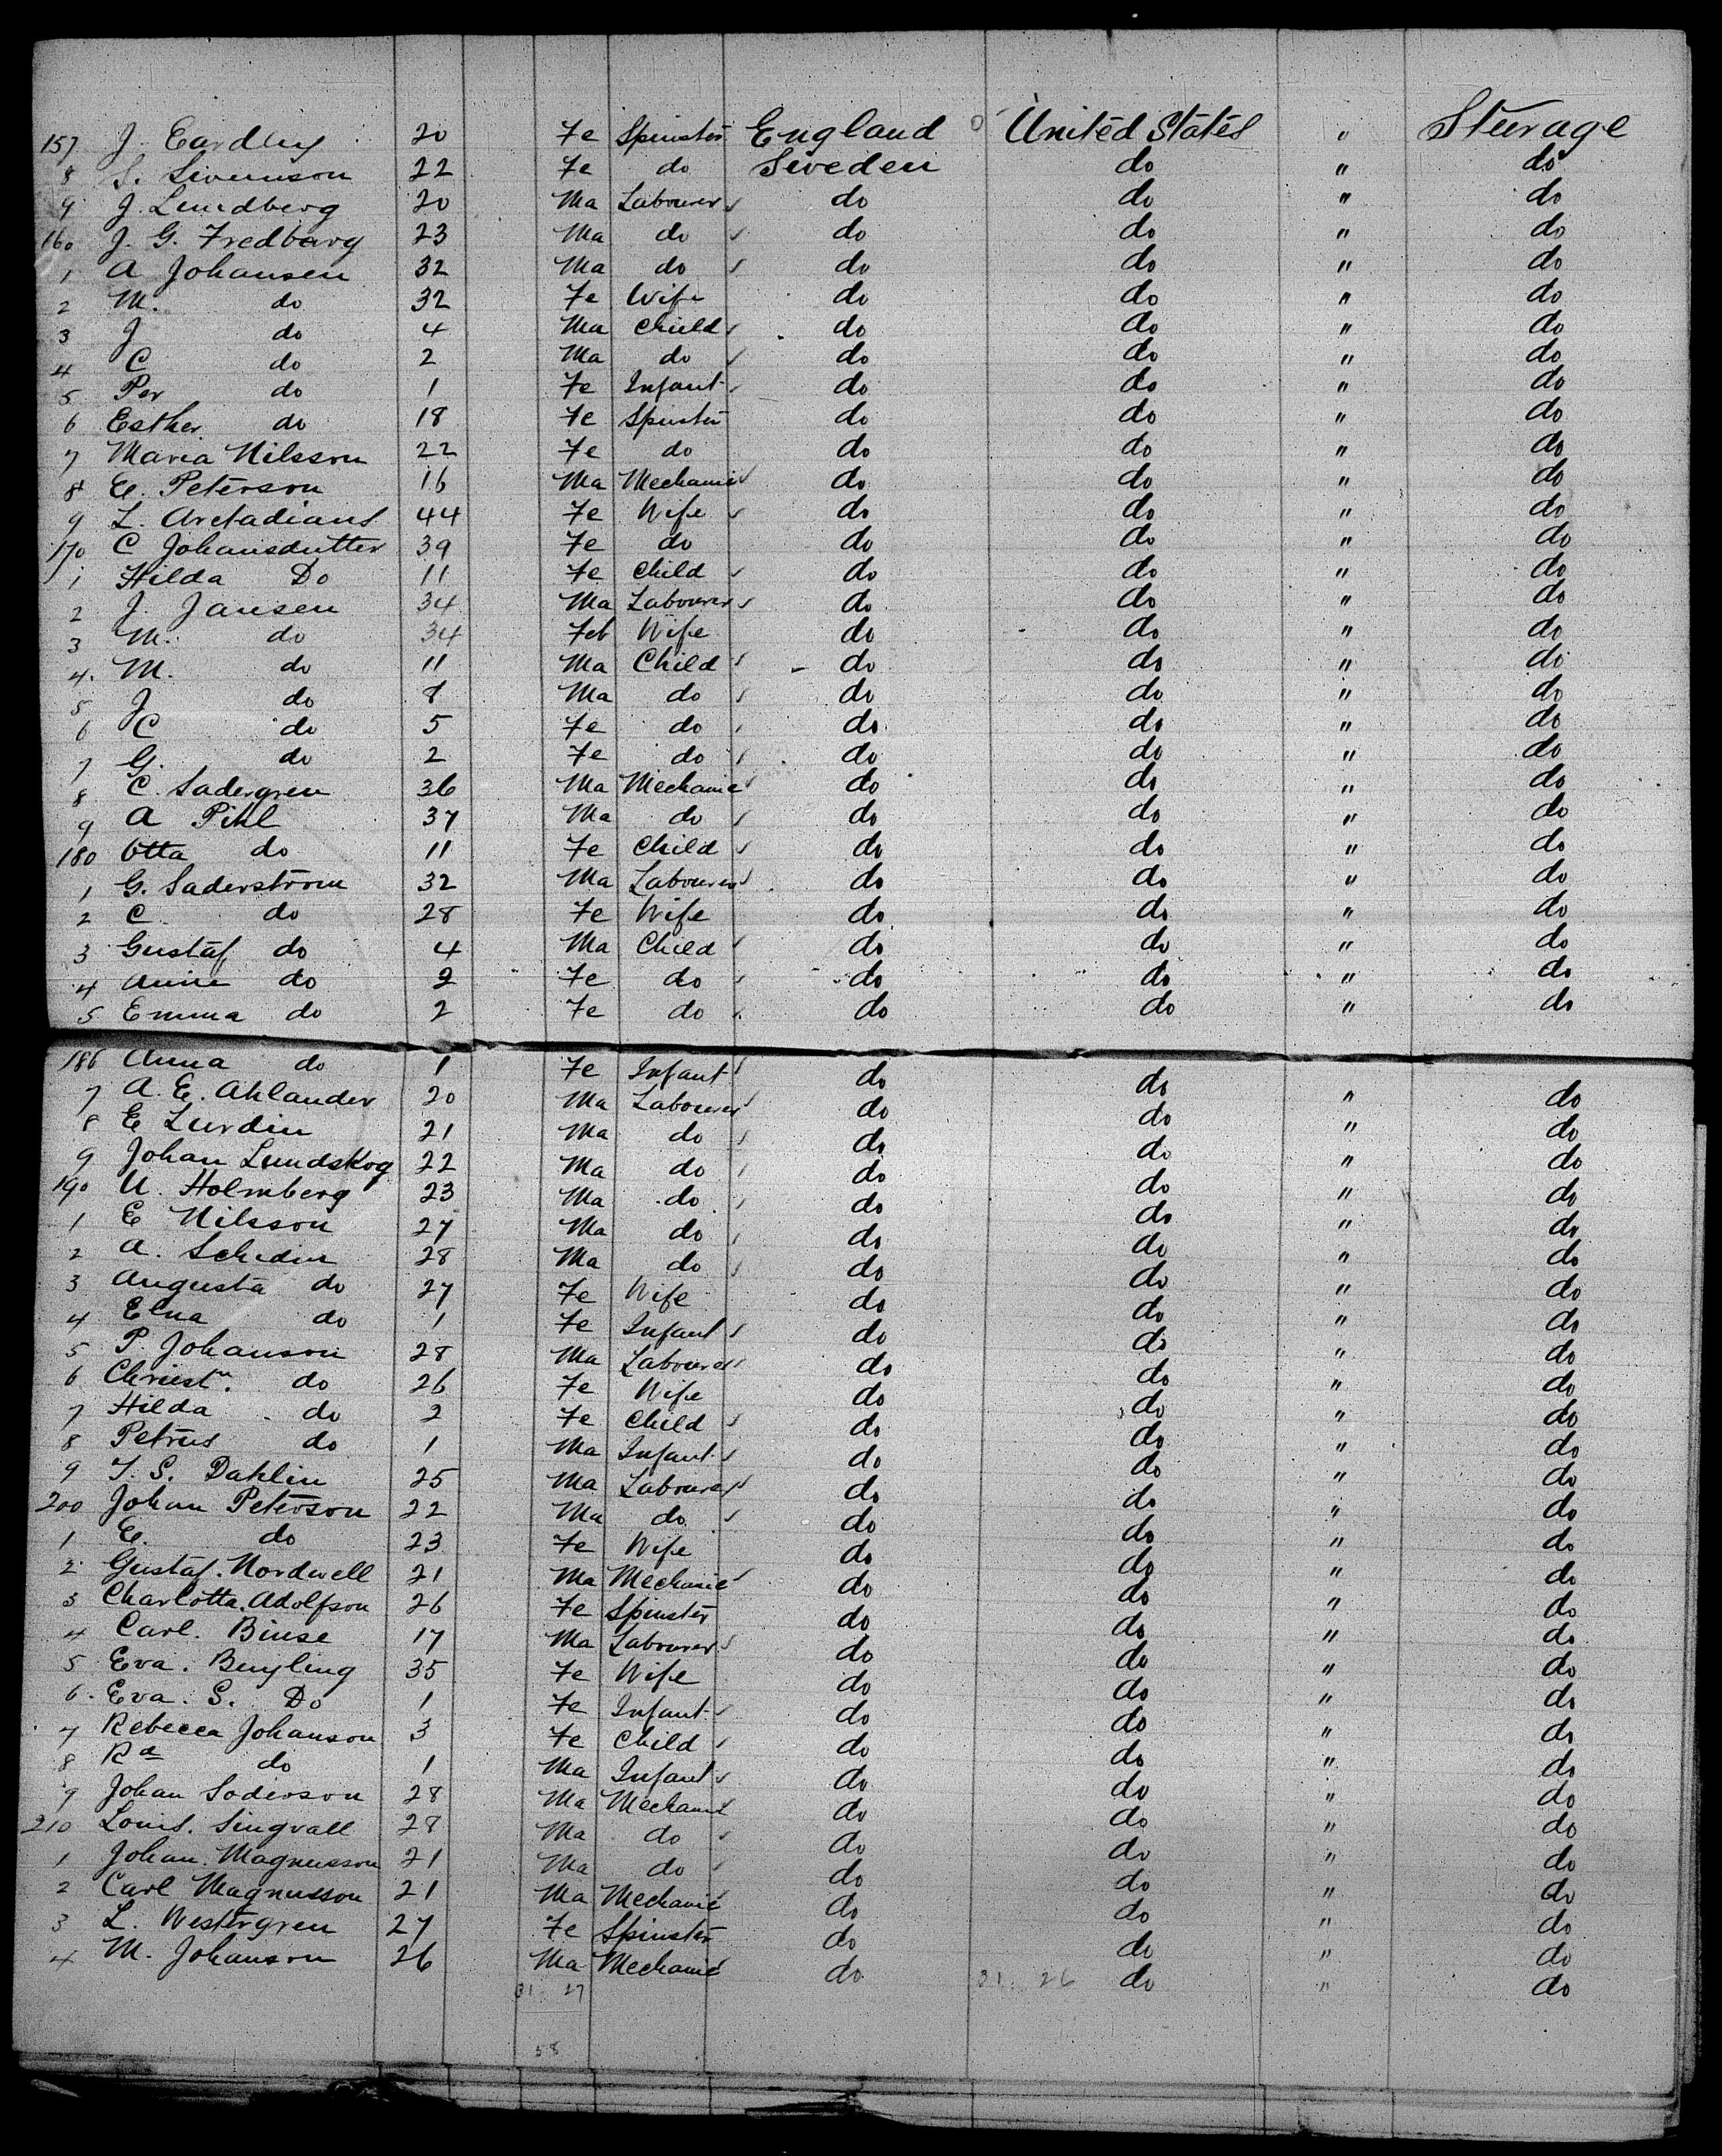 157 J. Eardley 20 Fe Spinster England United States " Steerage
8 S. Swenson 22 Fe do Sweden do " do
9 J. Lundberg 20 Ma Labourer do do " do
160 J. G. Fredbarg 23 Ma do do do " do
1 A Johansen 32 Ma do do do " do
2 M. do 32 Fe Wife do do " do
3 J do 4 Ma Child do do " do
4 C do 2 Ma do do do " do
5 Per do 1 Fe Infant do do " do
6 Esther do 18 Fe Spinster do do " do
7 Maria Nilsson 22 Fe do do do " do
8 E. Peterson 16 Ma Mechanic do do " do
9 L. 44 Fe Wife do do " do
170 C Johansdutter 39 Fe do do do " do
1 Hilda Do 11 Fe Child do do " do
2 J. Jansen 34 Ma Labourer do do " do
3 M. do 34 Fe Wife do do " do
4. M. do 11 Ma Child do do " do
5 J do 8 Ma do do do " do
6 C do 5 Fe do do do " do
7 G. do 2 Fe do do do " do
8 C. Sadergren 36 Ma Mechanic do do " do
9 A Pihl 37 Ma do do do " do
180 Otta do 11 Fe Child do do " do
1 G. Saderstrom 32 Ma Labourer do do " do
2 C do 28 Fe Wife do do " do
3 Gustaf do 4 Ma Child do do " do
4 Anna do 2 Fe do do do " do
5 Emma do 2 Fe do do do " do
186 Anna do 1 Fe Infant do do " do
7 A. E. Ahlander 20 Ma Labourer do do " do
8 E Lurdin 21 Ma do do do " do
9 Johan Lundskog 22 Ma do do do " do
190 U. Holmberg 23 Ma do do do " do
1 E Nilsson 27 Ma do do do " do
2 A. Schedin 28 Ma do do do " do
3 Augusta do 27 Fe Wife do do " do
4 Elna do 1 Fe Infant do do " do
5 P. Johanson 28 Ma Labourer do do " do
6 Christn. do 26 Fe Wife do do " do
7 Hilda do 2 Fe Child do do " do
8 Petrus do 1 Ma Infant do do " do
9 T. S. Dahlin 25 Ma Labourer do do " do
200 Johan Peterson 22 Ma do do do " do
1 E. do 23 Fe Wife do do " do
2 Gustaf. Nordwell 21 Ma Mechanic do do " do
3 Charlotta. Adolfson 26 Fe Spinster do do " do
4 Carl. Binse 17 Ma Labourer do do " do
5 Eva. 35 Fe Wife do do " do
6. Eva. S. Do 1 Fe Infant do do " do
7 Rebecca Johanson 3 Fe Child do do " do
8 Rd do 1 Ma Infant do do " do
9 Johan Soderson 28 Ma Mechanic do do " do
210 Louis. Singvall 28 Ma do do do " do
1 Johan. Magnusson 21 Ma do do do " do
2 Carl Magnusson 21 Ma Mechanic do do " do
3 L. Westergren 27 Fe Spinster do do " do
4 M. Johanson 26 Ma Mechanic do do " do
31 27 31. 26
58